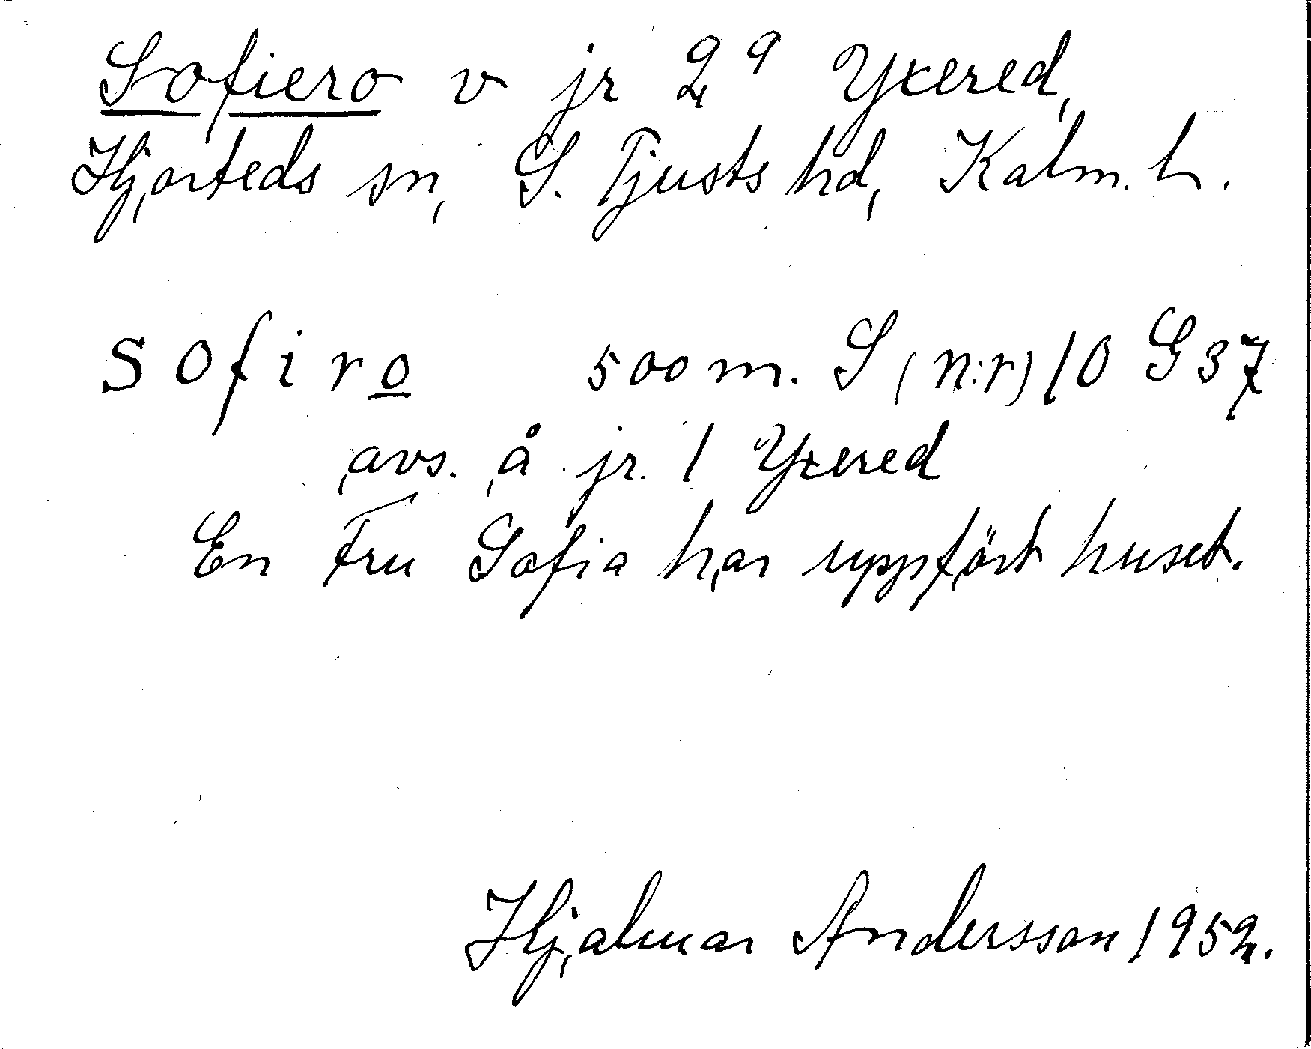 Sofiero v jr 2⁹ Yxered,
Hjorteds sn, S. Tjusts hd, Kalm. l.
Sofiro 500 m. S (n:r) 10 G 37
avs. å jr. 1 Yxered
En Fru Sofia har uppfört huset.
Hjalmar Andersson 1952.